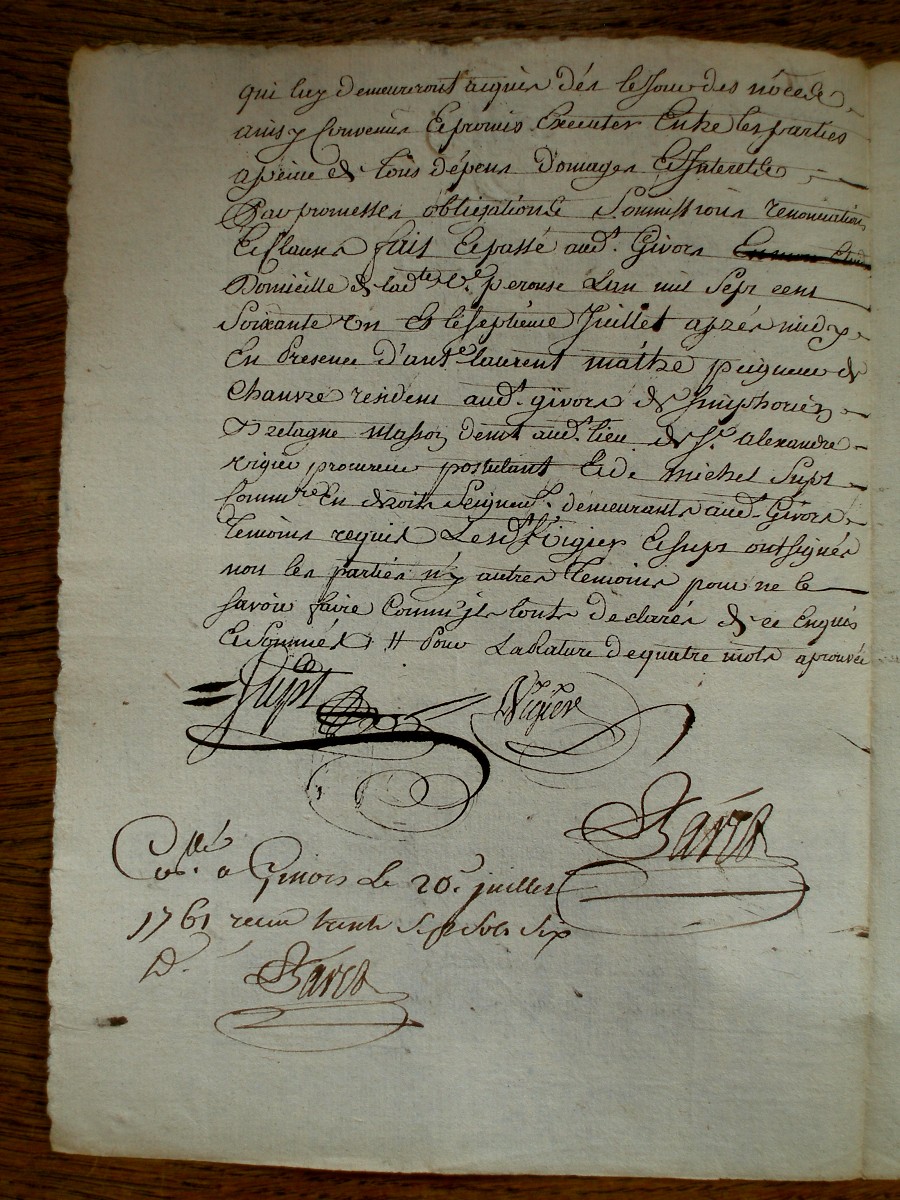 qui luy demeureront aiquis dès le Jour des nôces
ainsy Convenu Et promis Executer Entre les parties
a peine de tous dépens Domages Et Interets
Par promesses obligations Soumissions renonciations
Et Clauses fait Et passé aud.t Givors
Domicille de lad.te v.e perouse L'an mil Sept cent
Soixante un Et le Septieme Juillet aprés midy
En Presence d'ant.e laurent mathe peigneur de
Chanvre resident aud.t givors de Simphorien
Bretagne Masson demt aud.t lieu de S.r alexandre
vigier procureur postulant Et de michel Supt
Comm.re En droits Seigneur.x demeurants aud.t Givors
Temoins requis Lesd.ts Vigier Et Supt ont signés
non les parties n'y autres Temoins pour ne le
Savoir faire Comm'jls l'onts Declarés de ce Enquis
Et Sommés # Pour La Rature de quatre mots aprouvée
Supt Vigier
Barod
Con.llé a Givors Le 20.e juillet
1761 reçu trente Sept Sols Six
D.
Barod